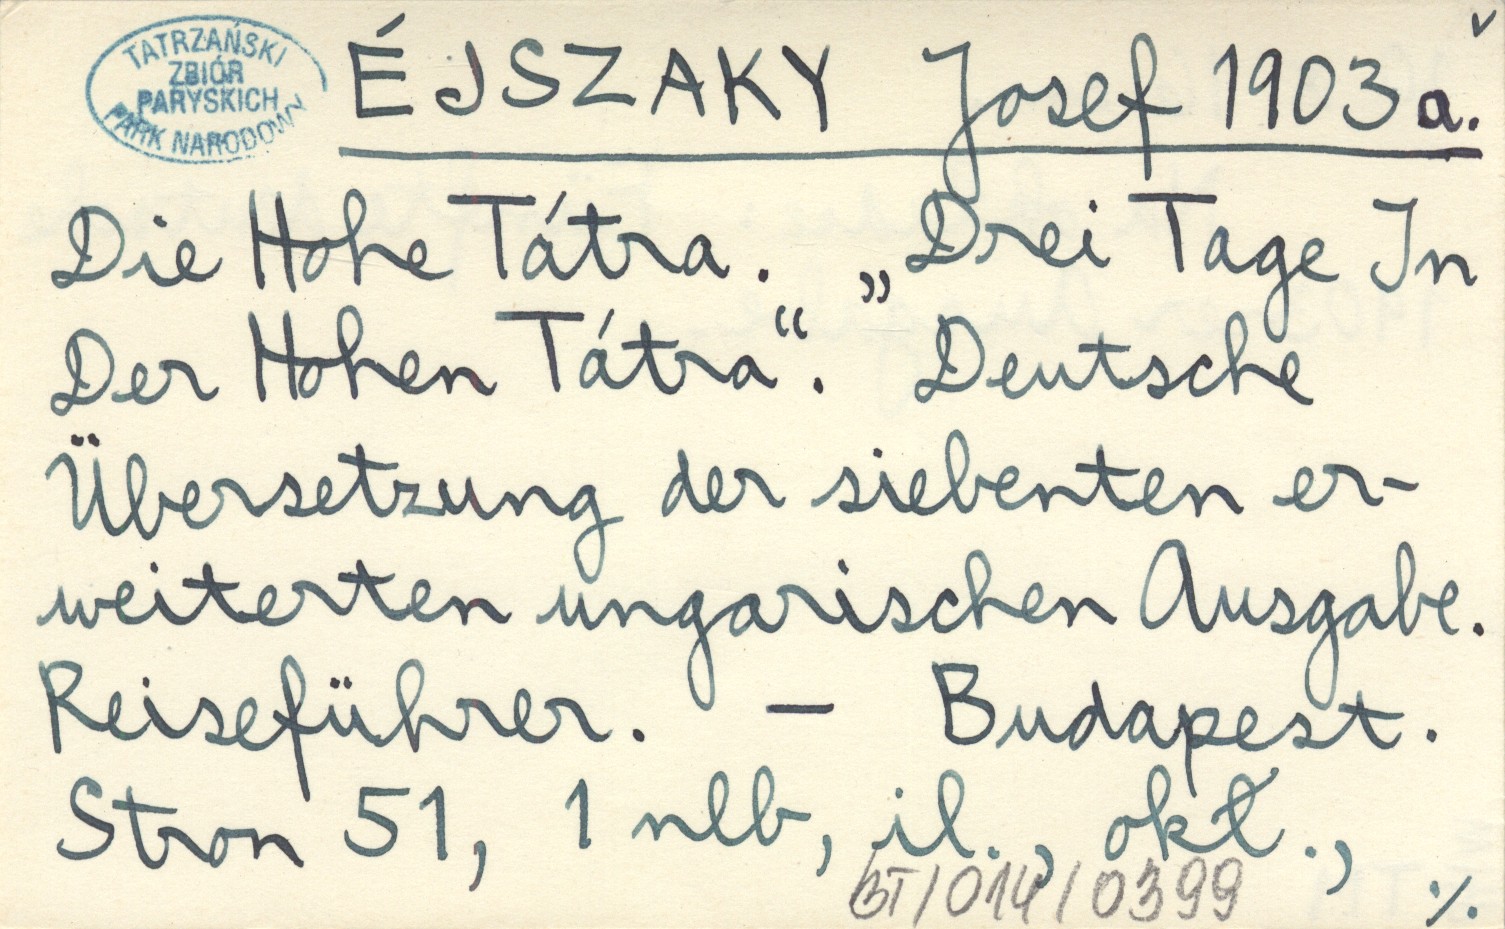 TATRZAŃSKI
ZBIÓR
PARYSKICH
PARK NARODOWY
ÉJSZAKY Josef 1903a.
Die Hohe Tátra. „Drei Tage In
Der Hohen Tátra“. Deutsche
Übersetzung der siebenten er-
weiterten ungarischen Ausgabe.
Reiseführer. — Budapest.
Stron 51, 1 nlb, il., okł.,
BT/014/0399
./.